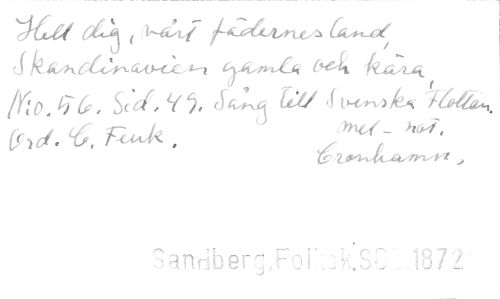 Hell dig, vårt fädernesland,
Skandinavien gamla och kära,
No. 56. Sid. 49. Sång till Svenska Flottan.
Ord. C. Fenk. mel-not.
Cronhamn.
Sandberg, Folksk. 1872